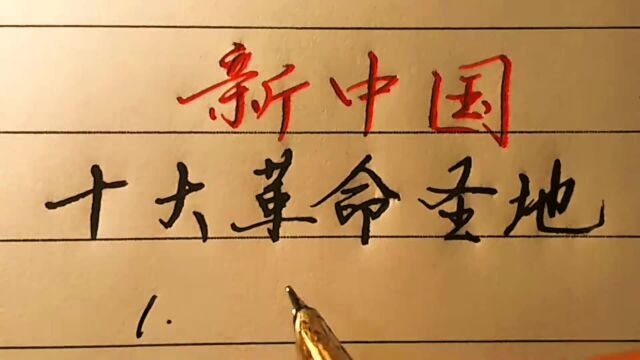 新中国
十大革命圣地
1.